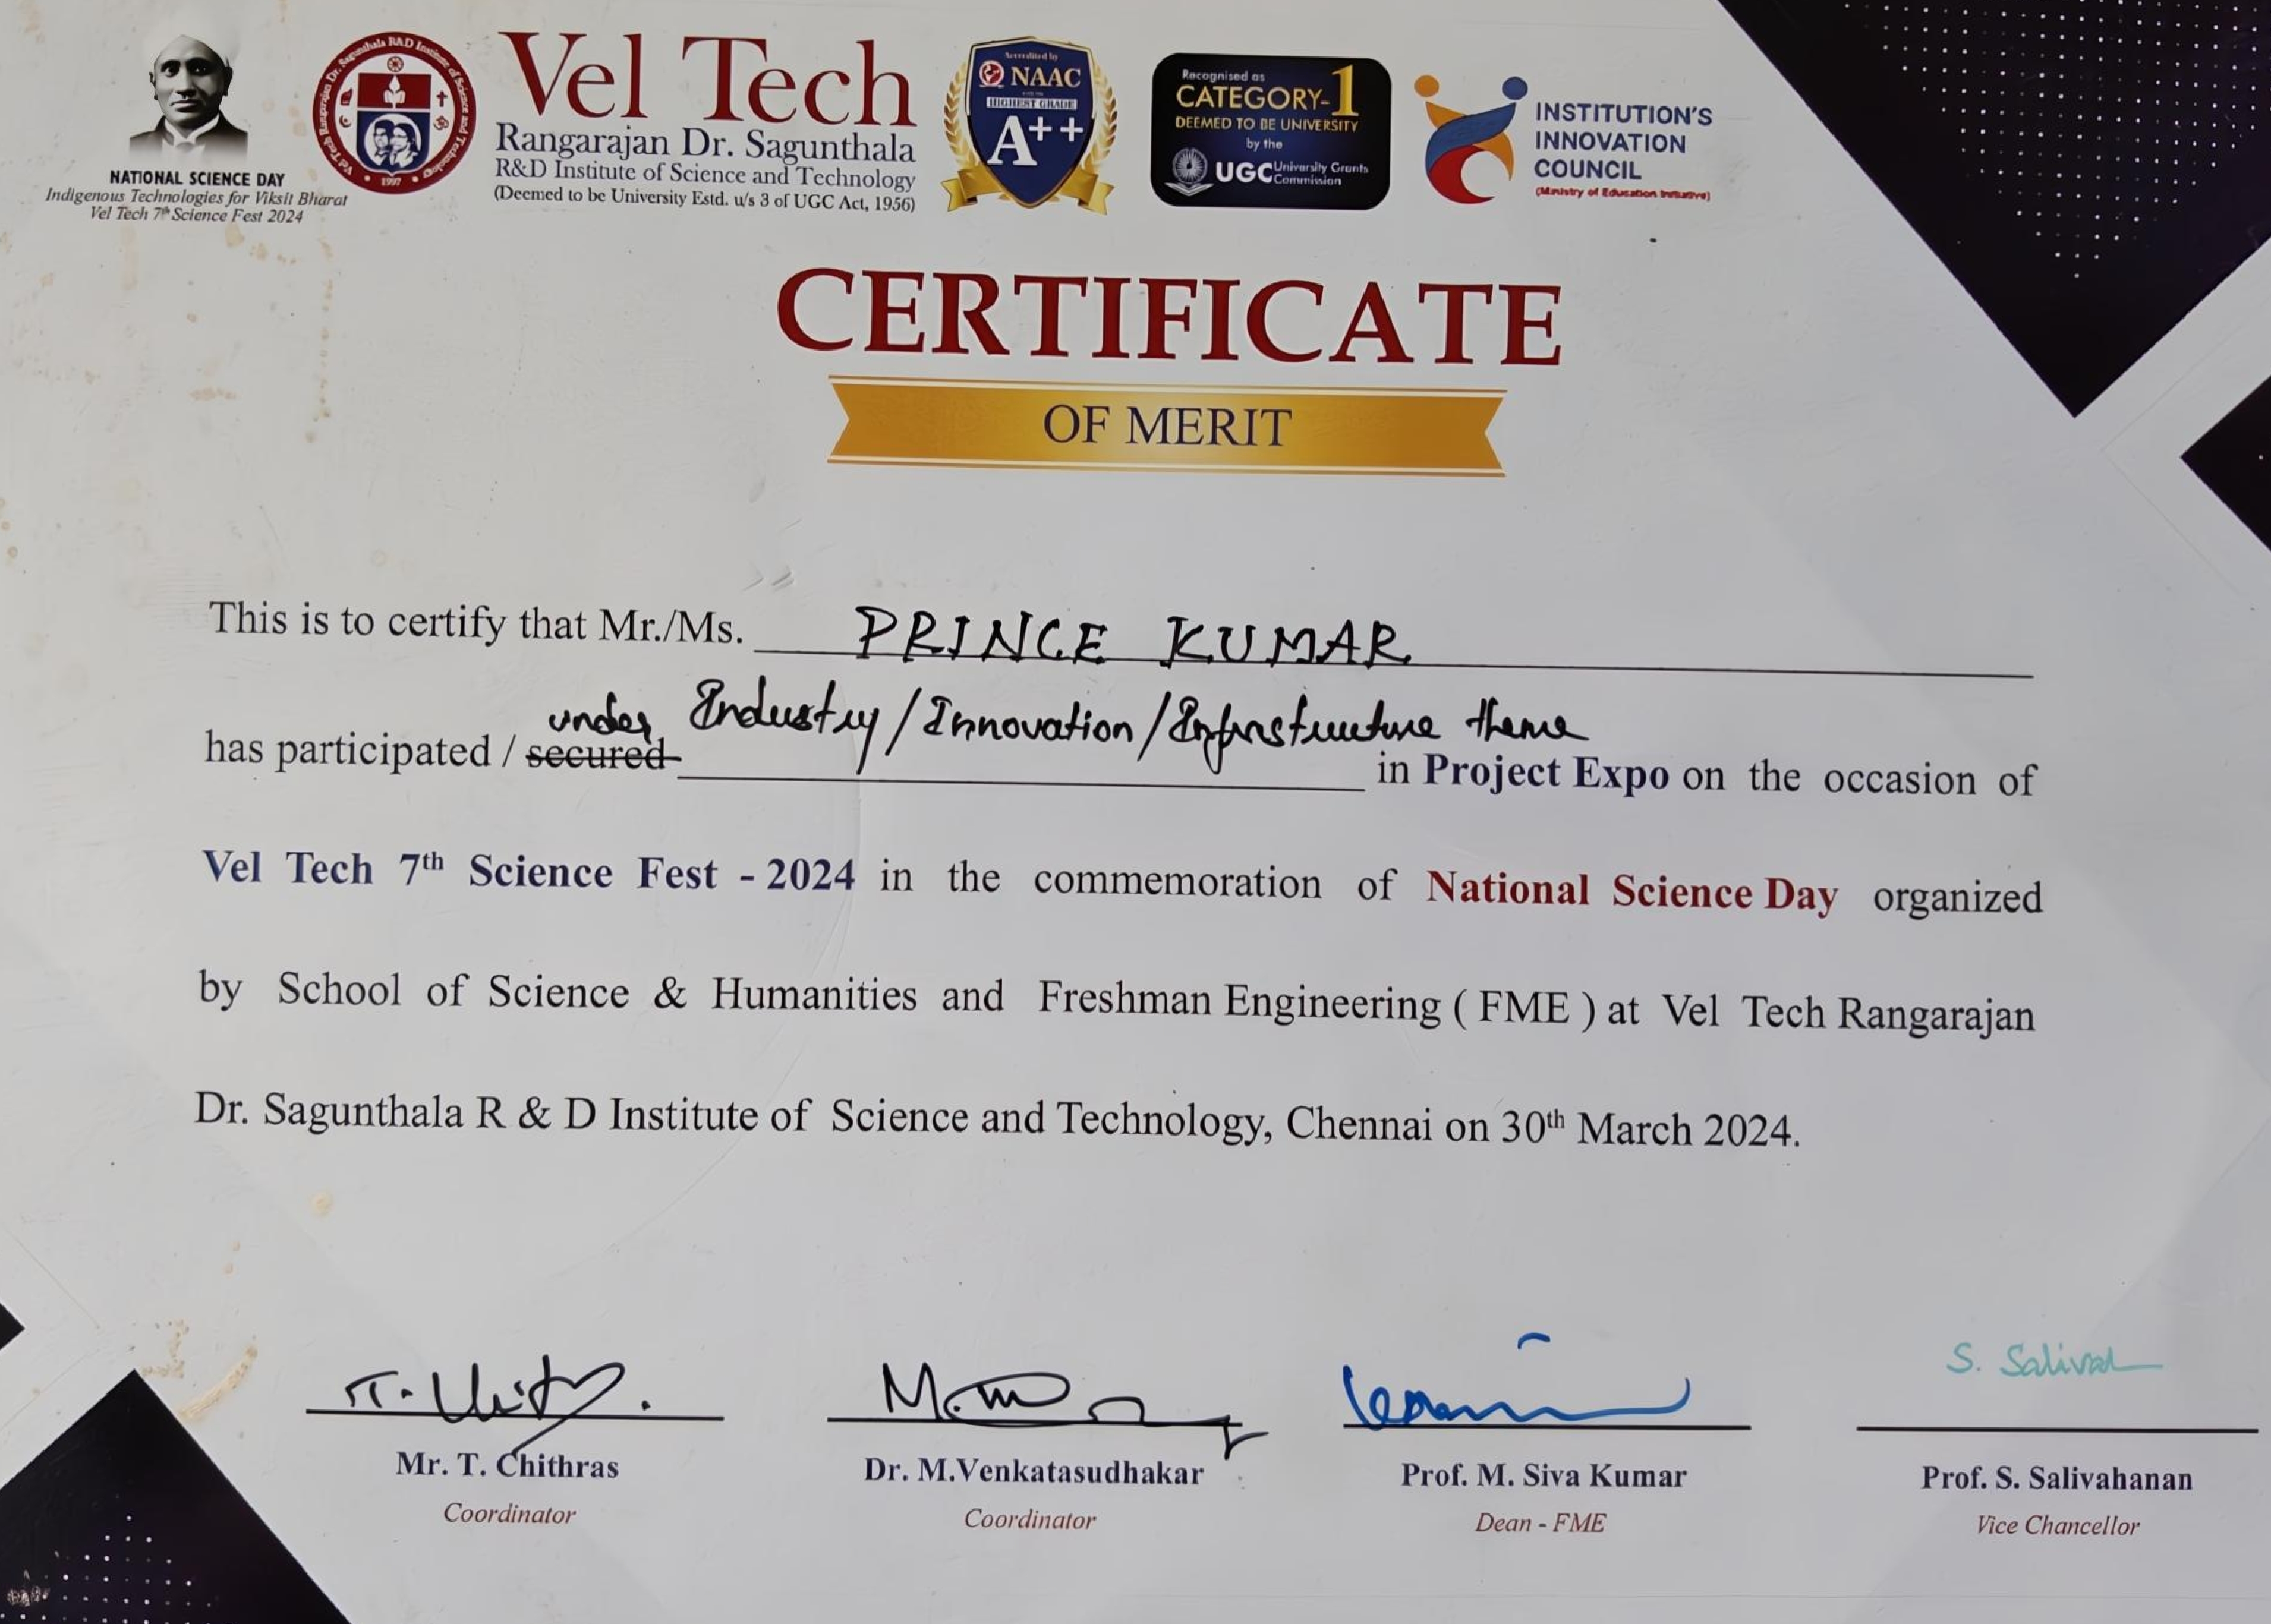 NATIONAL SCIENCE DAY
Indigenous Technologies for Viksit Bharat
Vel Tech 7th Science Fest 2024
Vel Tech Rangarajan Dr. Sagunthala R&D Institute of Science and Technology
1997
Vel Tech
Rangarajan Dr. Sagunthala
R&D Institute of Science and Technology
(Deemed to be University Estd. u/s 3 of UGC Act, 1956)
Accredited by
NAAC
HIGHEST GRADE
A++
Recognised as
CATEGORY-1
DEEMED TO BE UNIVERSITY
by the
UGC University Grants Commission
INSTITUTION'S
INNOVATION
COUNCIL
(Ministry of Education Initiative)
CERTIFICATE
OF MERIT
This is to certify that Mr./Ms. PRINCE KUMAR
under Industry/Innovation/Infrastructure theme
has participated / secured in Project Expo on the occasion of
Vel Tech 7th Science Fest - 2024 in the commemoration of National Science Day organized
by School of Science & Humanities and Freshman Engineering ( FME ) at Vel Tech Rangarajan
Dr. Sagunthala R & D Institute of Science and Technology, Chennai on 30th March 2024.
S. Salivah
Mr. T. Chithras
Dr. M.Venkatasudhakar
Prof. M. Siva Kumar
Prof. S. Salivahanan
Coordinator
Coordinator
Dean - FME
Vice Chancellor